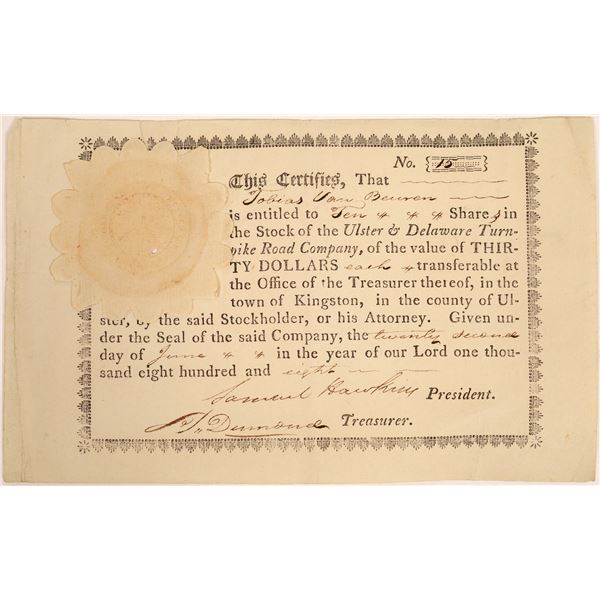 No. 15
This Certifies, That
Tobias Van Beuren
is entitled to Ten Shares in
the Stock of the Ulster & Delaware Turn-
pike Road Company, of the value of THIR-
TY DOLLARS each transferable at
the Office of the Treasurer thereof, in the
town of Kingston, in the county of Ul-
ster, by the said Stockholder, or his Attorney. Given un-
der the Seal of the said Company, the twenty second
day of June in the year of our Lord one thou-
sand eight hundred and eight
Samuel Hawkins President.
Dumond Treasurer.